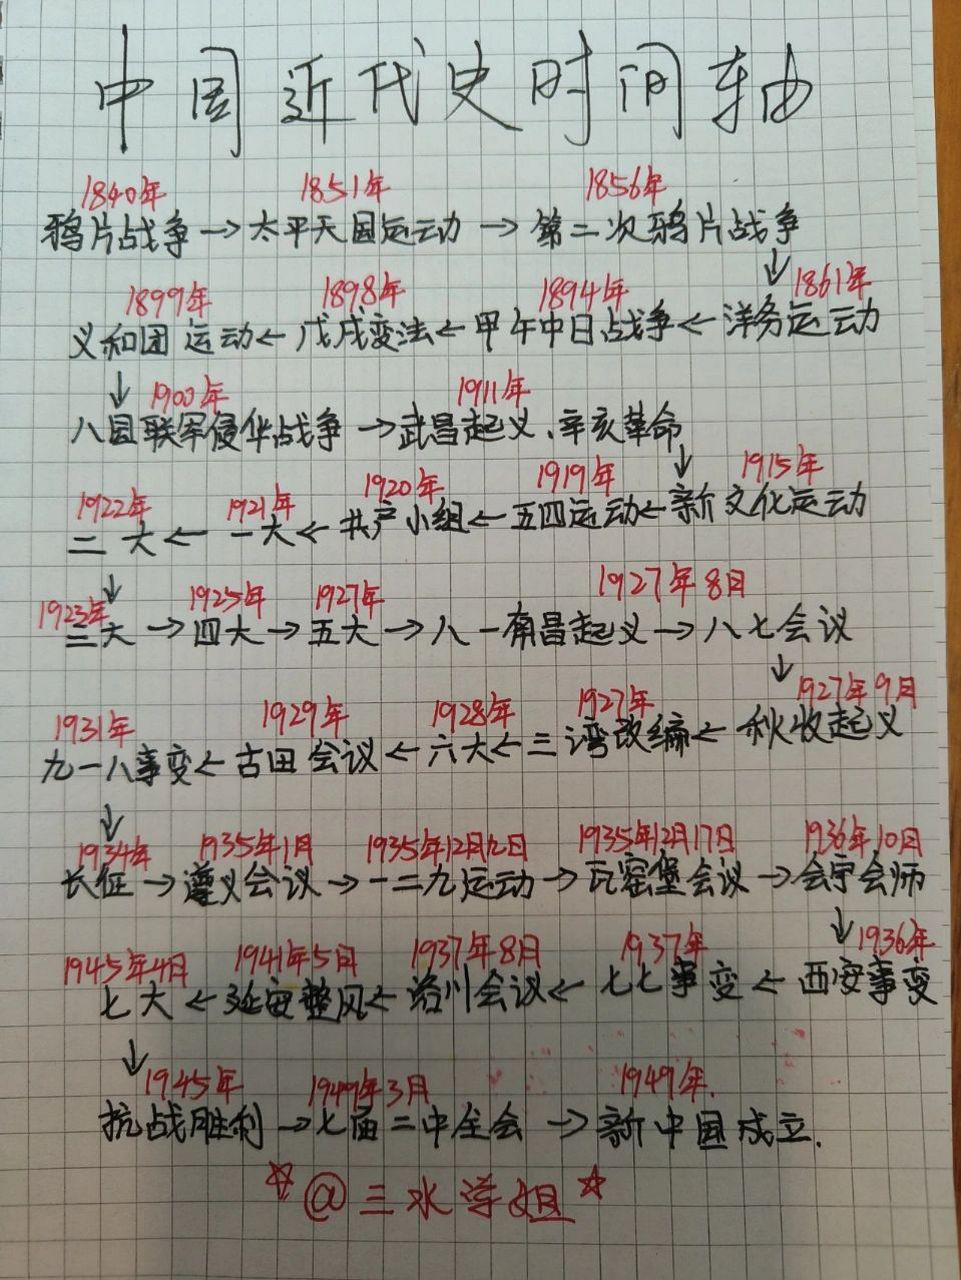 中国近代史时间轴
1840年 1851年 1856年
鸦片战争→太平天国运动→第二次鸦片战争
↓
1899年 1898年 1894年 1861年
义和团运动←戊戌变法←甲午中日战争←洋务运动
↓ 1900年 1911年
八国联军侵华战争→武昌起义、辛亥革命
↓
1922年 1921年 1920年 1919年 1915年
二大←一大←共产小组←五四运动←新文化运动
↓
1923年 1925年 1927年 1927年8月
三大→四大→五大→八一南昌起义→八七会议
↓
1931年 1929年 1928年 1927年 1927年9月
九一八事变←古田会议←六大←三湾改编←秋收起义
↓
1934年 1935年1月 1935年12月九日 1935年12月17日 1936年10月
长征→遵义会议→一二九运动→瓦窑堡会议→会宁会师
↓
1945年4月 1941年5月 1937年8月 1937年 1936年
七大←延安整风←洛川会议←七七事变←西安事变
↓
1945年 1949年3月 1949年.
抗战胜利→七届二中全会→新中国成立.
☆@三水学姐☆